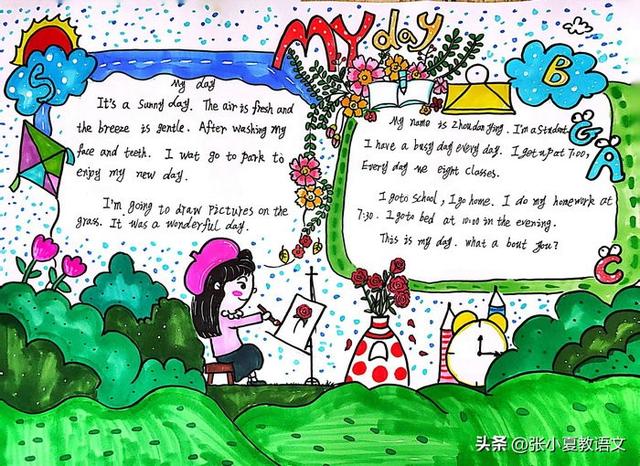 My day
S
My day
It's a sunny day. The air is fresh and
the breeze is gentle. After washing my
face and teeth. I wat go to park to
enjoy my new day.
I'm going to draw pictures on the
grass. It was a wonderful day.
B
G
A
C
My name is Zhoudanjing. I'm a student
I have a busy day every day. I get up at 7:00,
Every day we eight classes.
I goto school, I go home. I do my homework at
7:30. I goto bed at 10:00 in the evening.
This is my day. what a bout you?
头条 @张小夏教语文